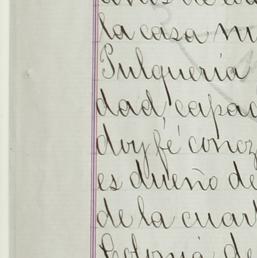 la casa
Pulquería
dad, capac
doy fé conoz
es dueño de
de la cuart
Colonia de